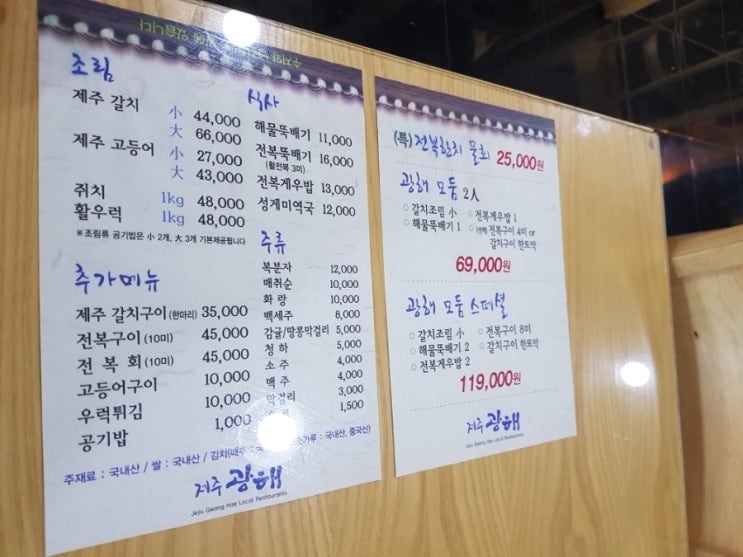 조림
제주 갈치 小 44,000
大 66,000
제주 고등어 小 27,000
大 43,000
쥐치 1kg 48,000
활우럭 1kg 48,000
※ 조림류 공기밥은 小 2개, 大 3개 기본제공됩니다
추가메뉴
제주 갈치구이 (한마리) 35,000
전복구이 (10미) 45,000
전 복 회 (10미) 45,000
고등어구이 10,000
우럭튀김 10,000
공기밥 1,000
식사
해물뚝배기 11,000
전복뚝배기 16,000
(활전복 3미)
전복게우밥 13,000
성게미역국 12,000
주류
복분자 12,000
매취순 10,000
화 랑 10,000
백세주 8,000
감귤/땅콩막걸리 5,000
청 하 5,000
소 주 4,000
맥 주 4,000
막걸리 3,000
1,500
주재료 : 국내산 / 쌀 : 국내산 / 김치(배추 : 국내산, 중국산)
제주 광해
Jeju Gwang Hae Local Restaurants
(특) 전복한치 물회 25,000원
광해 모둠 2人
○ 갈치조림 小 ○ 전복게우밥 1
○ 해물뚝배기 1 ○ (선택) 전복구이 4미 or
갈치구이 한토막
69,000원
광해 모둠 스페셜
○ 갈치조림 小 ○ 전복구이 8미
○ 해물뚝배기 2 ○ 갈치구이 한토막
○ 전복게우밥 2
119,000원
제주 광해
Jeju Gwang Hae Local Restaurants